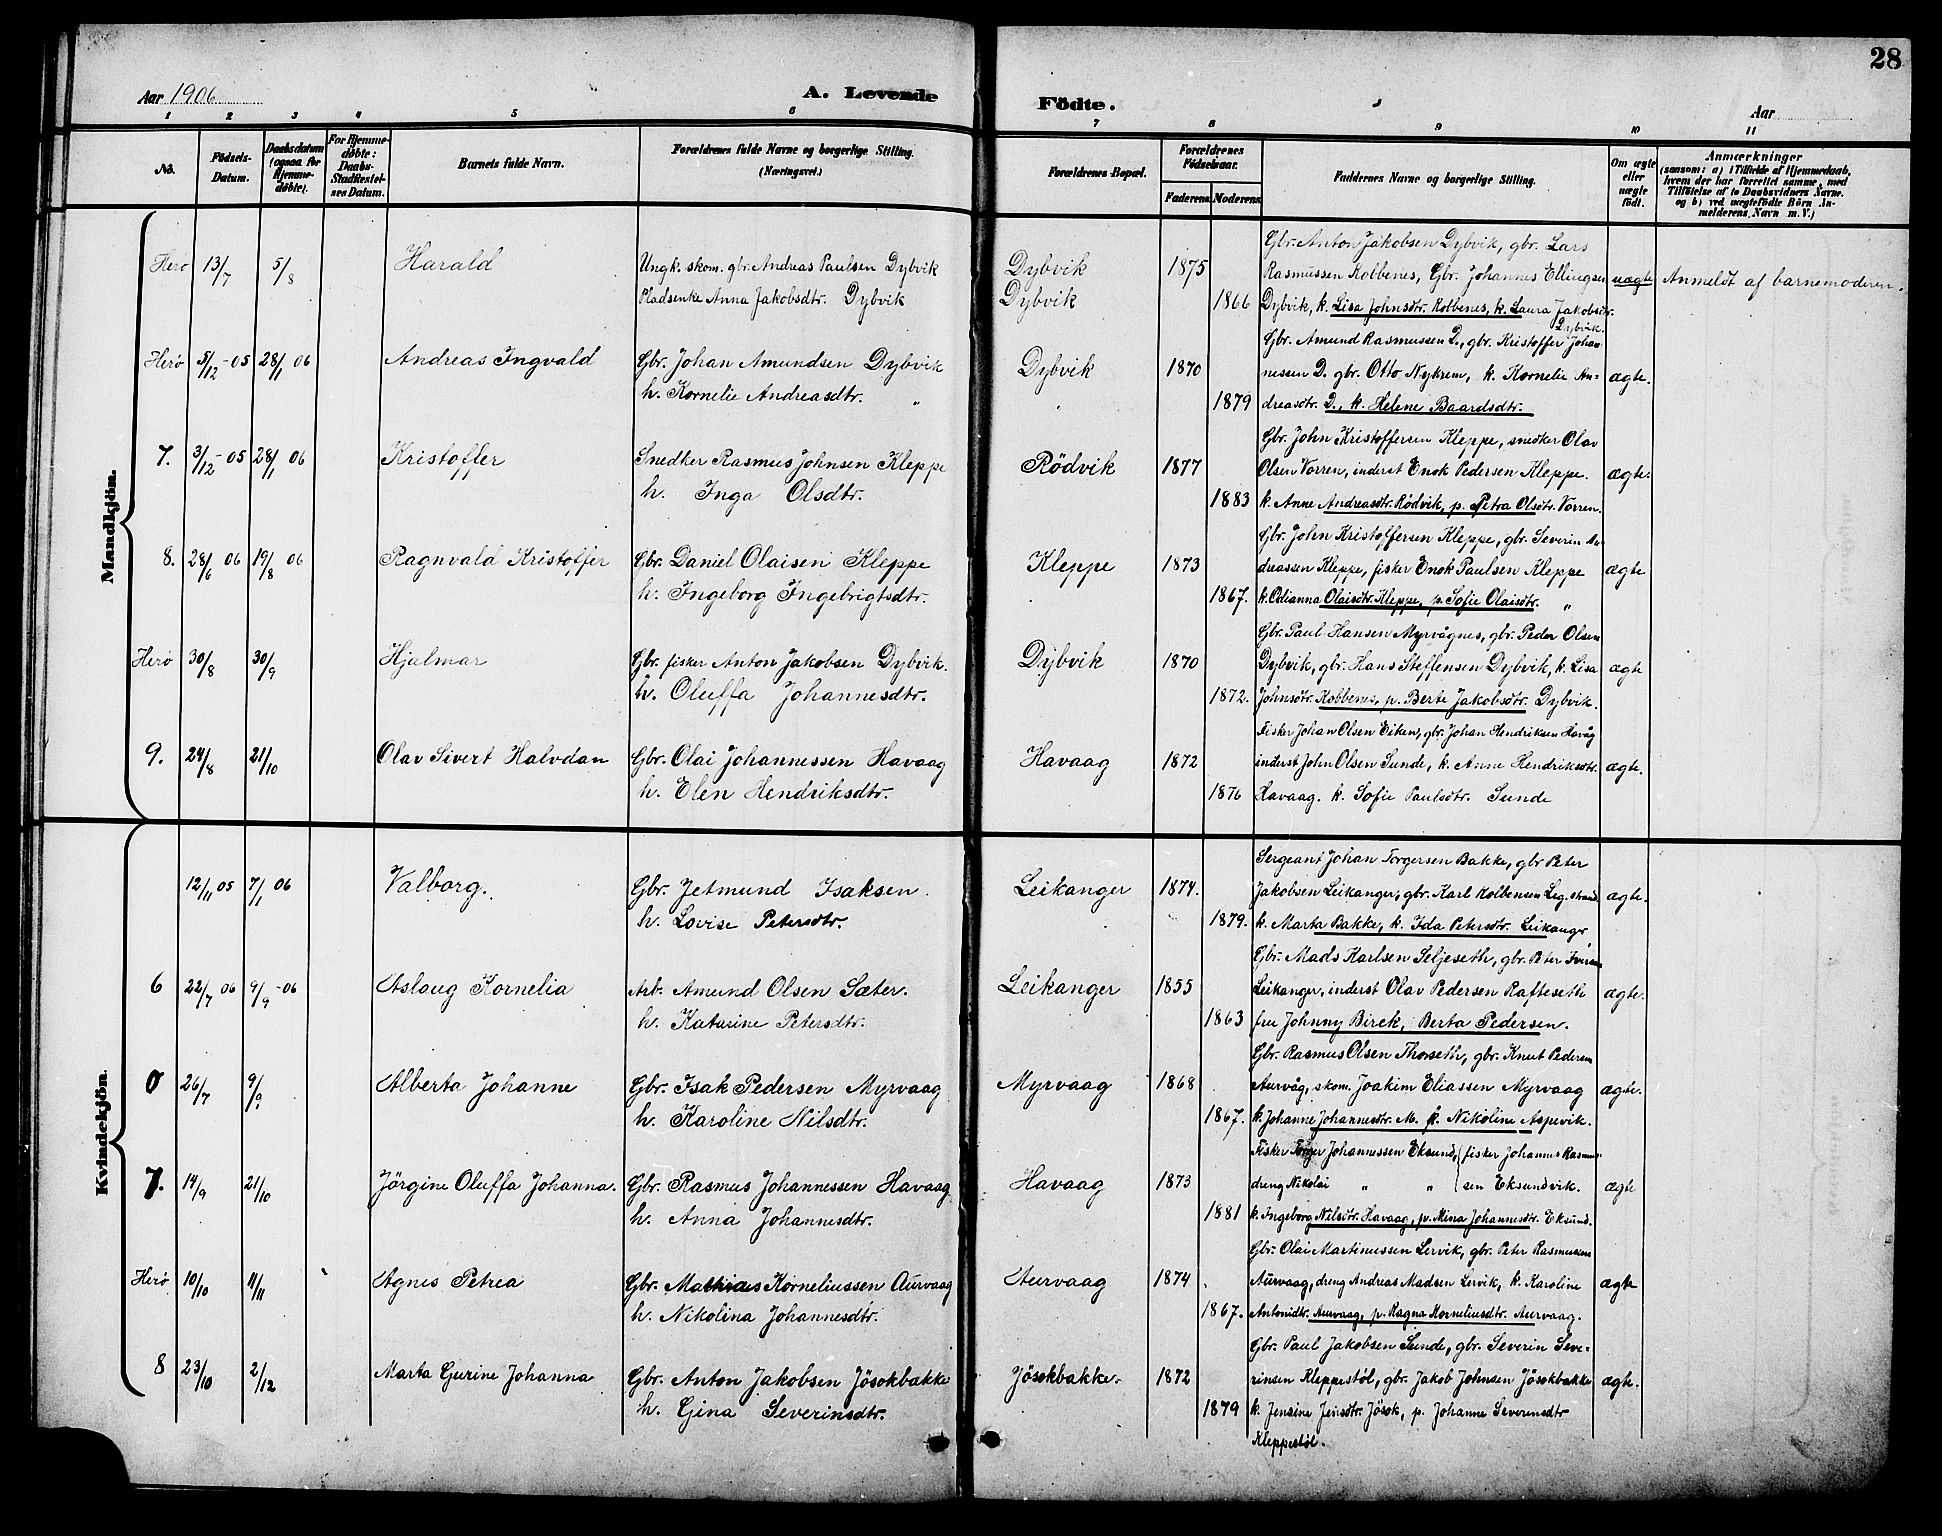 28
Aar 1906
A. Levende
Födte.
Aar
1 2 3 4 5 6 7 8 9 10 11
No.
Födsels-Datum.
Daabsdatum (ogsaa for Hjemmedøbte).
For Hjemmedøbte: Daabs-Stadfæstelses Datum.
Barnets fulde Navn.
Forældrenes fulde Navne og borgerlige Stilling. (Næringsvei.)
Forældrenes Bopæl.
Forældrenes Födselsaar.
Faderens. Moderens.
Faddernes Navne og borgerlige Stilling.
Om ægte eller uægte født.
Anmærkninger
(saasom: a) i Tilfælde af Hjemmedaab, hvem der har forrettet samme, med Tilføielse af to Daabsvidners Navne. og b) ved uægtefödte Börn Anmelderens Navn m. V.)
Mandkjön.
Herø 13/7 5/8 Harald
Ungk. skom. gbr. Andreas Paulsen Dybvik
Pladsenke Anna Jakobsdtr. Dybvik
Dybvik 1875
Dybvik 1866
Gbr. Anton Jakobsen Dybvik, gbr. Lars
Rasmussen Kobbenes, Gbr. Johannes Ellingsen
Dybvik, k. Lisa Johnsdtr. Kobbenes, k. Laura Jakobsdtr.
Dybvik.
uægte Anmeldt af barnemoderen.
Herø 5/12-05 28/1 06 Andreas Ingvald
Gbr. Johan Amundsen Dybvik
h. Kornelie Andreasdtr. "
Dybvik 1870
1879
Gbr. Amund Rasmussen D., gbr. Kristoffer Johan-
nessen D. gbr. Otto Nykrem, k. Kornelie An-
dreasdtr. D., k. Helene Baardsdtr.
ægte.
7. 3/12-05 28/1 06 Kristoffer
Snedker Rasmus Johnsen Kleppe
h. Inga Olsdtr.
Rödvik 1877
1883
Gbr. John Kristoffersen Kleppe, snedker Olav
Olsen Vorren, inderst Enok Pedersen Kleppe.
k. Anne Andreasdtr. Rødvik, p. Petra Olsdtr. Vorren.
ægte.
8. 28/6 06 19/8 06 Ragnvald Kristoffer
Gbr. Daniel Olaisen Kleppe
h. Ingeborg Ingebrigtsdtr.
Kleppe 1873
1867.
Gbr. John Kristoffersen Kleppe, gbr. Severin An-
dreassen Kleppe, fisker Enok Paulsen Kleppe
k. Olianna Olaisdtr. Kleppe, p. Sofie Olaisdtr. "
ægte
Herø 30/8 30/9 Hjalmar
Gbr. fisker Anton Jakobsen Dybvik.
h. Oluffa Johannesdtr.
Dybvik 1870
1872.
Gbr. Paul Hansen Myrvågnes, gbr. Peder Olsen
Dybvik, gbr. Hans Steffensen Dybvik, k. Lisa
Johnsdtr. Kobbenes, p. Berte Jakobsdtr. Dybvik.
ægte
9. 24/8 21/10 Olav Sivert Halvdan
Gbr. Olai Johannessen Havaag
h. Elen Hendriksdtr.
Havaag 1872
1876
Fisker Johan Olsen Eiken, gbr. Johan Hendriksen Havåg
inderst John Olsen Sunde, k. Anne Hendriksdtr.
Havaag. k. Sofie Paulsdtr. Sunde
ægte.
Kvindekjön.
12/11 05 7/1 06 Valborg.
Gbr. Jetmund Isaksen.
h. Lovise Petersdtr.
Leikanger 1874.
1879.
Sergeant Johan Torgersen Bakke, gbr Peter
Jakobsen Leikanger, gbr. Karl Kolbensen Leg. strand.
k. Marta Bakke, k. Ida Petersdtr. Leikanger
ægte.
6 22/7 06 9/9-06 Aslaug Kornelia
Arb. Amund Olsen Sæter.
h. Katarine Petersdtr.
Leikanger 1855
1863
Gbr. Mads Karlsen Seljeseth, gbr. Peter Iversen
Leikanger, inderst Olav Pedersen Rafteseth
fru Johnny Birck, Berta Pedersen.
ægte.
0 26/7 9/9 Alberta Johanne
Gbr. Isak Pedersen Myrvaag
h. Karoline Nilsdtr.
Myrvaag 1868
1867.
Gbr. Rasmus Olsen Thorseth, gbr. Knut Pedersen
Aurvåg, skom. Joakim Eliassen Myrvaag
k. Johanne Johannesdtr. M. k. Nikoline Aspevik.
ægte.
7. 14/9 21/10 Jörgine Oluffa Johanna.
Gbr. Rasmus Johannessen Havaag
h. Anna Johannesdtr.
Havaag 1873
1881
Fisker Torger Johannessen Eksund, fisker Johannes Rasmus-
dreng Nikolai " " sen Eksundvik.
k. Ingeborg Nilsdtr. Havaag, p. Mina Johannesdtr. Eksund.
ægte
Herø 10/10 11/11 Agnes Petrea
Gbr. Mathias Korneliussen Aurvaag
h. Nikolina Johannesdtr.
Aurvaag 1874
1867.
Gbr. Olai Martinussen Lervik, gbr. Peter Rasmussen
Aurvaag, dreng Andreas Madsen Lervik, k. Karoline
Antonidtr. Aurvaag, p. Ragna Korneliusdtr. Aurvaag.
ægte
8 23/10 2/12 Marta Gurine Johanna
Gbr. Anton Jakobsen Jösokbakke
h. Gina Severinsdtr.
Jösokbakke. 1872
1879
Gbr. Paul Jakobsen Sunde, gbr. Severin Seve-
rinsen Kleppestøl, gbr. Jakob Johnsen Jösokbakke
k. Jensine Jensdtr. Jösok, p. Johanne Severensdtr
Kleppestøl.
ægte.